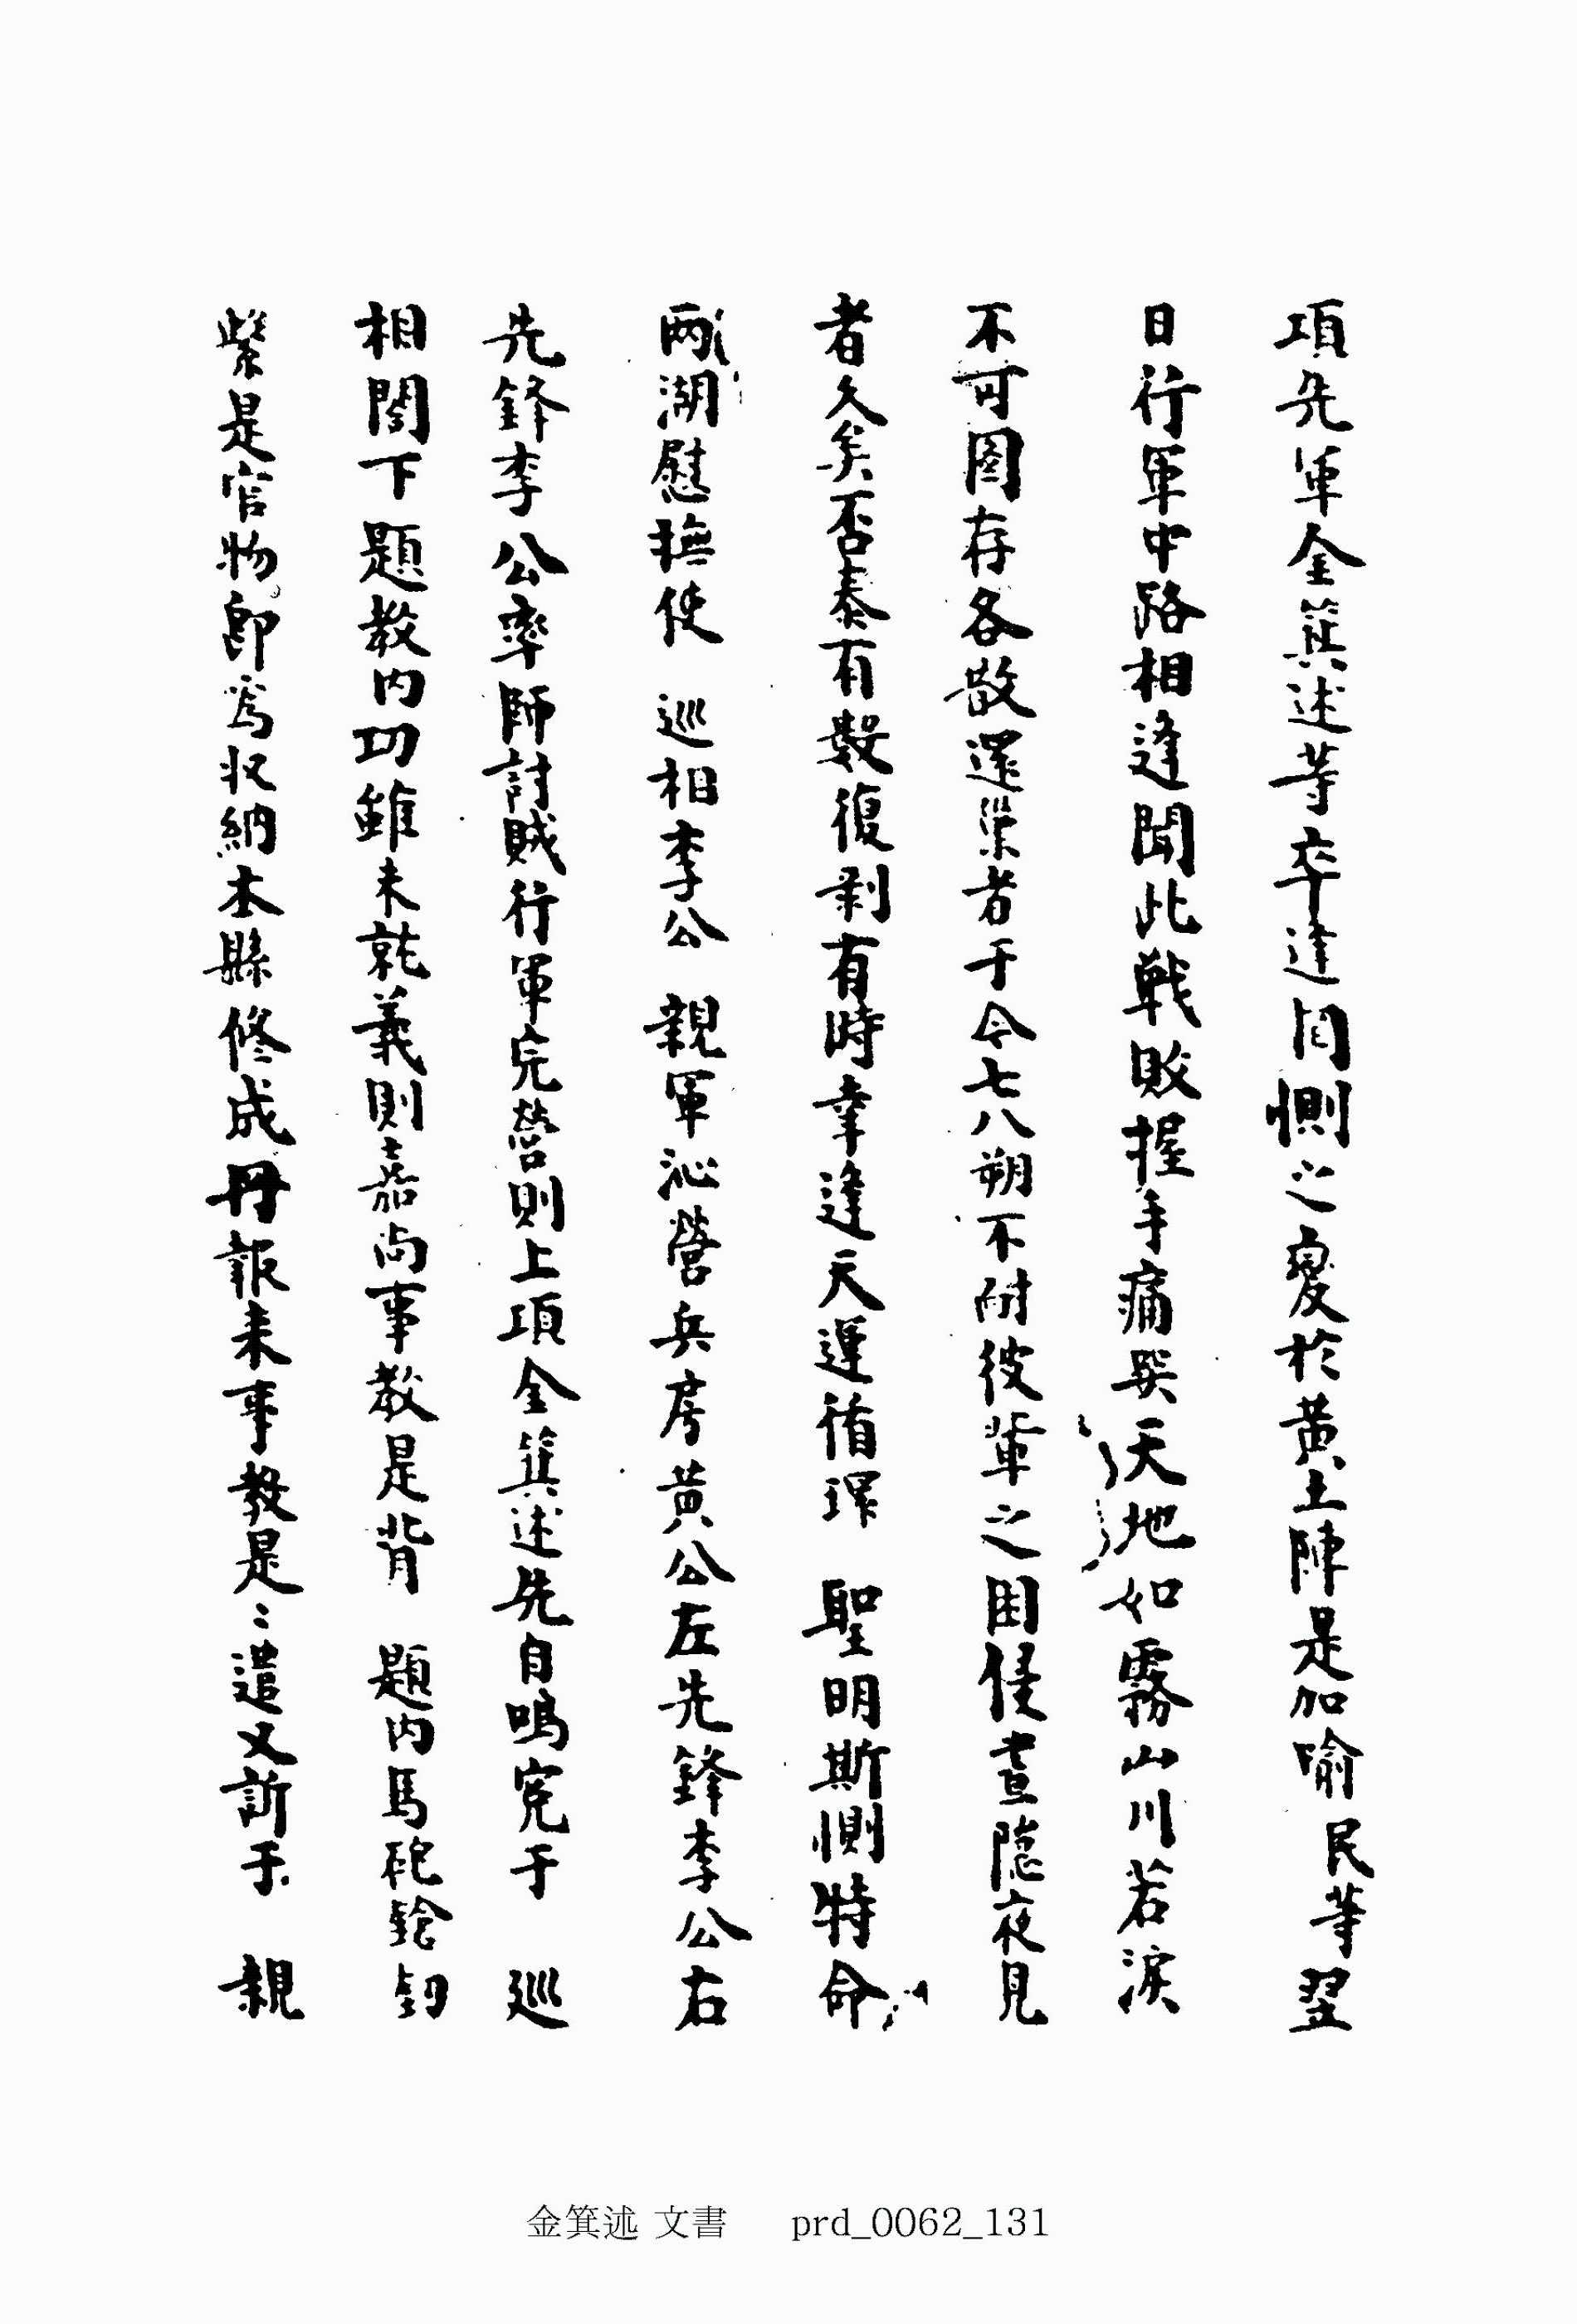 項先軍金箕述等卒逢罔惻之變於黃土陣是加喩民等翌
日行軍中路相逢聞此戰敗握手痛哭天地如霧山川若淚
不可圖存各散還巢者于今七八朔不耐彼輩之困侵晝隱夜見
者久矣否泰有數復剝有時幸逢天運循環 聖明斯惻特命
兩湖慰撫使 巡相李公 親軍沁營兵房黃公左先鋒李公右
先鋒李公率師討賊行軍完營則上項金箕述先自鳴寃于 巡
相閤下題教內功雖未就義則嘉尚事教是背 題內馬砲鎗釰
柴是官物卽爲収納本縣修成冊報来事教是〻遣又訴于 親
金箕述 文書 prd_0062_131